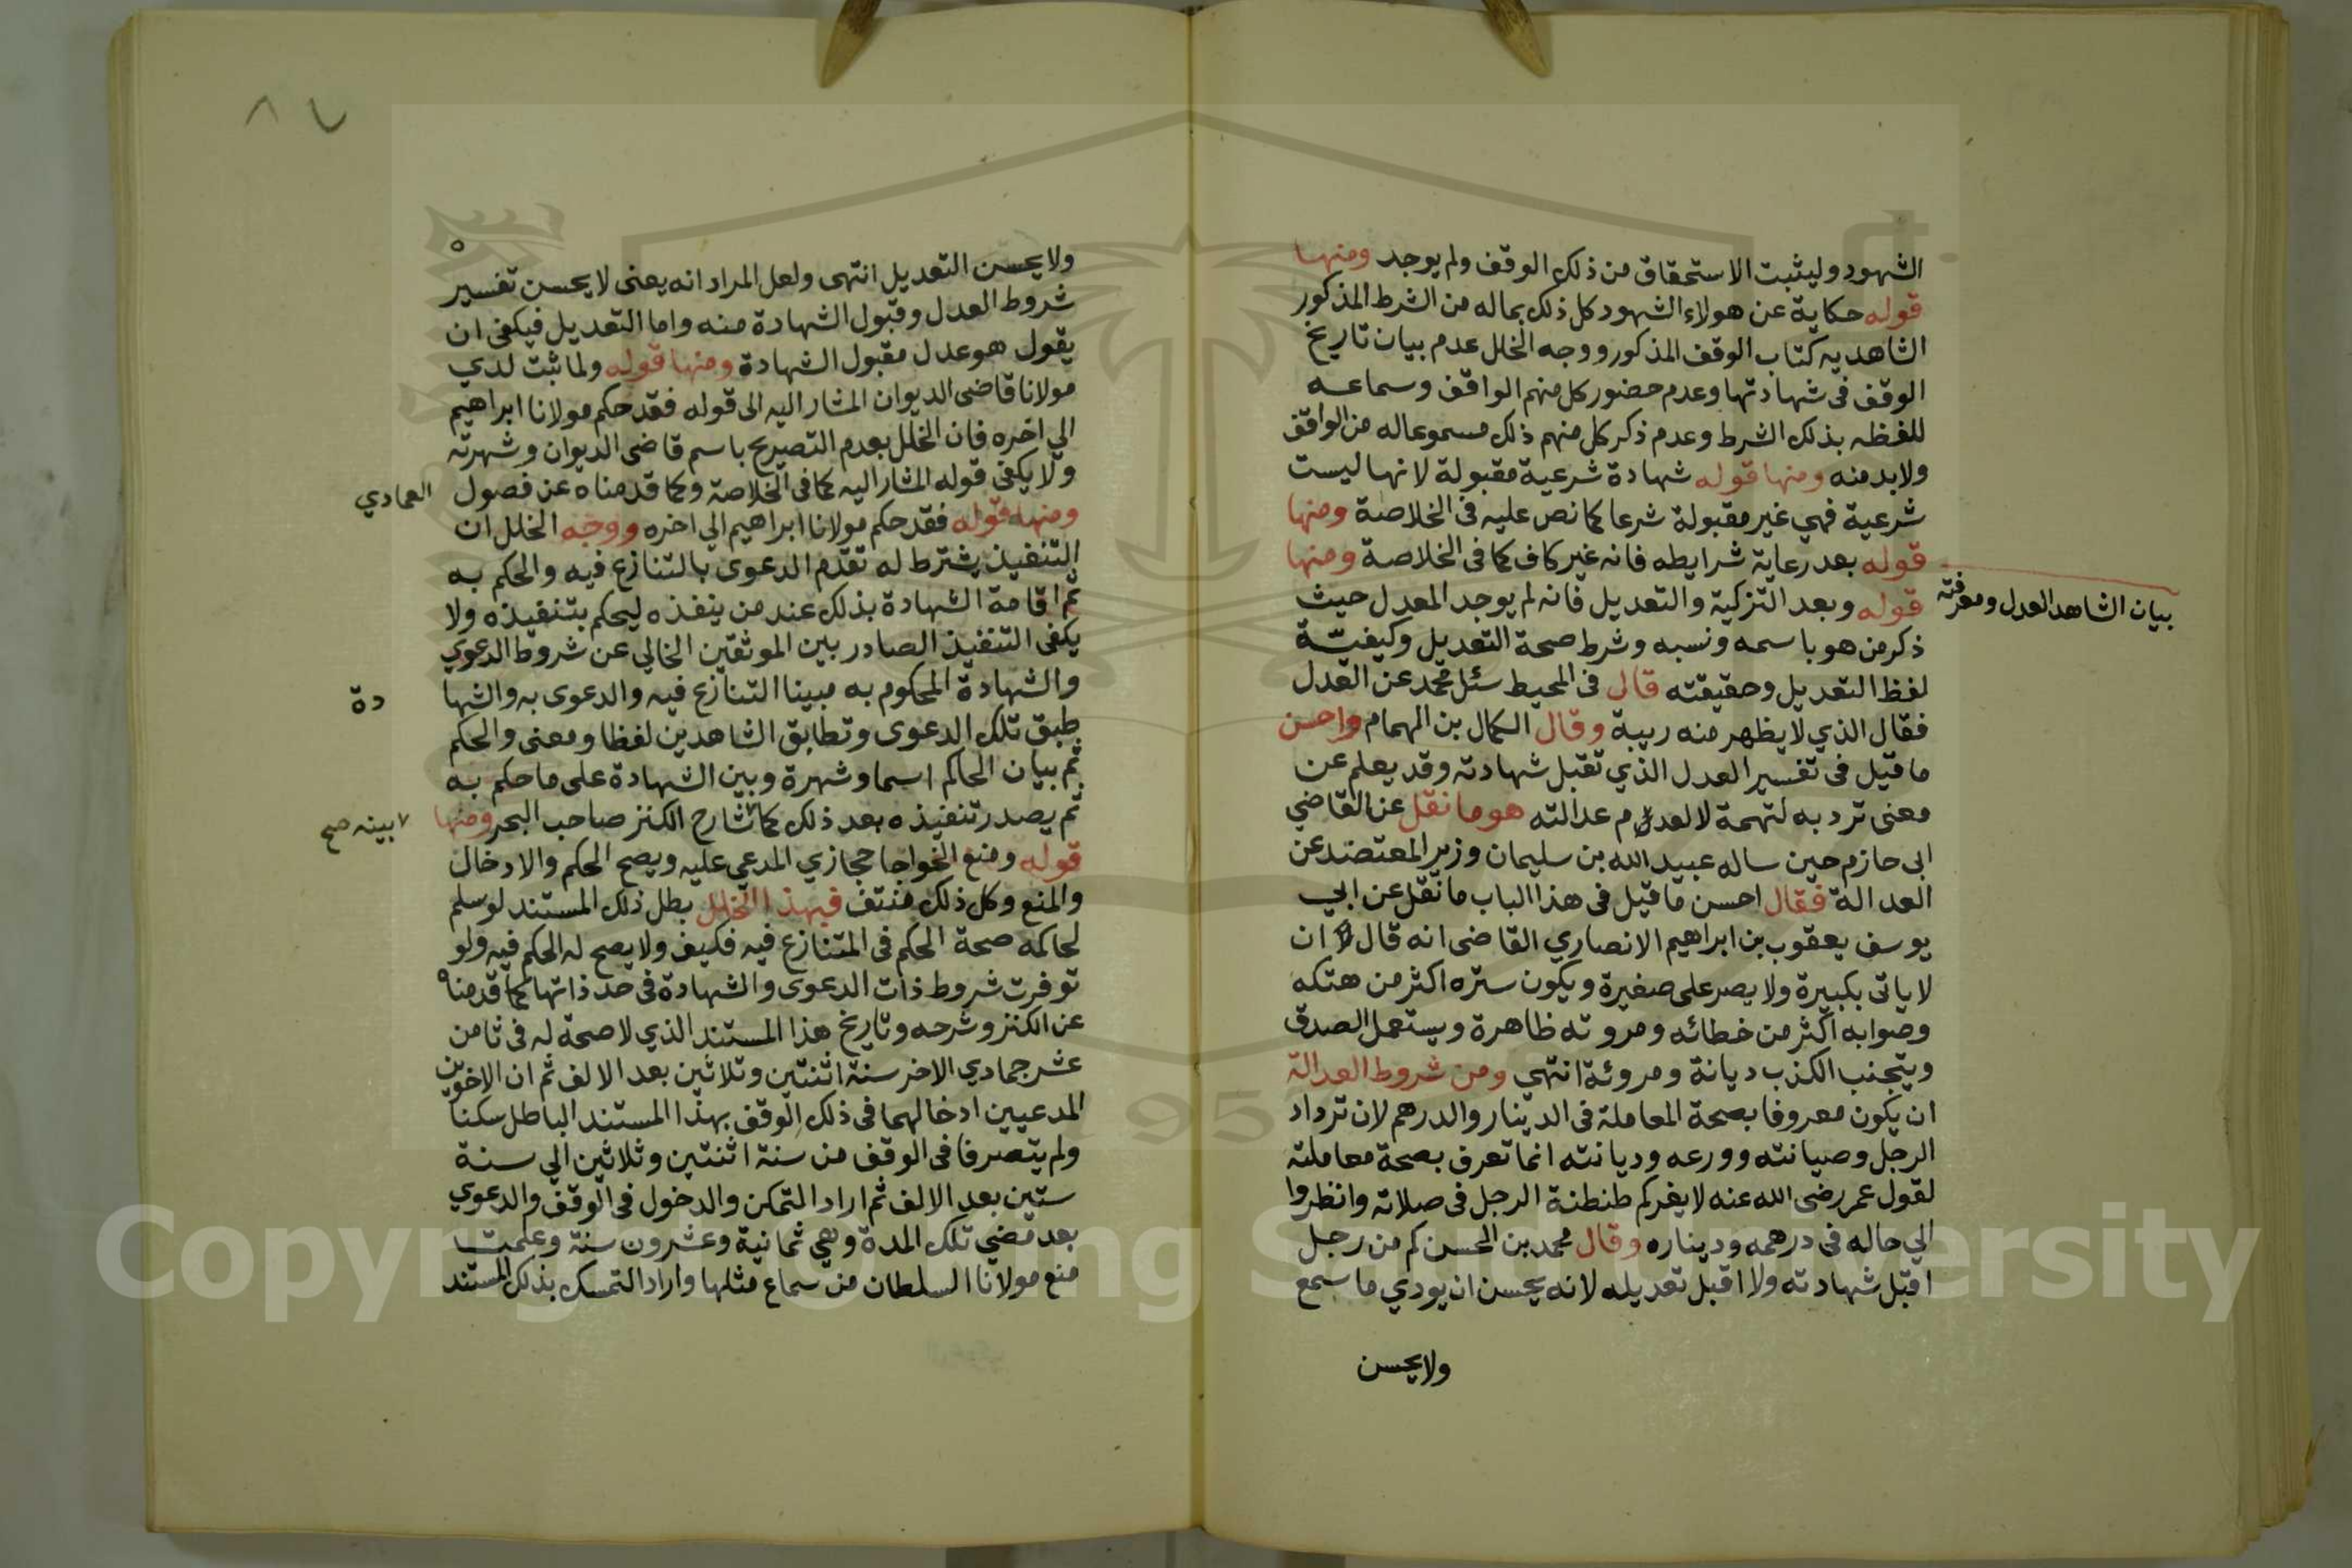 الشهود وليثبت الاستحقاق من ذلك الوقف ولم يوجد ومنها
قوله حكاية عن هولاء الشهود كل ذلك بماله من الشرط المذكور
الشاهد به كتاب الوقف المذكور ووجه الخلل عدم بيان تاريخ
الوقف فى شهادتها وعدم حضور كل منهم الواقف وسماعه
للفظه بذلك الشرط وعدم ذكر كل منهم ذلك مسموعا له من الواقف
ولابد منه ومنها قوله شهادة شرعية مقبولة لانها ليست
شرعية فهي غير مقبولة شرعا كما نص عليه فى الخلاصة ومنها
قوله بعد رعاية شرايطه فانه غير كاف كما فى الخلاصة ومنها
قوله وبعد التزكية والتعديل فانه لم يوجد المعدل حيث
بيان الشاهد العدل ومعرفته
ذكر من هو باسمه ونسبه وشرط صحة التعديل وكيفيّة
لفظ التعديل وحقيقته قال فى المحيط سئل محمد عن العدل
فقال الذي لا يظهر منه ريبة وقال الكمال بن الهمام واحسن
ما قيل فى تفسير العدل الذي تقبل شهادته وقد يعلم عن
معنى ترد به لتهمة لا لعدم عدالته هو ما نقل عن القاضي
ابى حازم حين ساله عبيد الله بن سليمان وزير المعتضد عن
العدالة فقال احسن ما قيل فى هذا الباب ما نقل عن ابي
يوسف يعقوب بن ابراهيم الانصاري القاضى انه قال ان
لا ياتى بكبيرة ولا يصر على صغيرة ويكون ستره اكثر من هتكه
وصوابه اكثر من خطائه ومروته ظاهرة ويستعمل الصدق
ويتجنب الكذب ديانة ومروئة انتهى ومن شروط العدالة
ان يكون معروفا بصحة المعاملة فى الدينار والدرهم لان ترداد
الرجل وصيانته وورعه وديانته انما تعرف بصحة معاملته
لقول عمر رضى الله عنه لا يغركم طنطنة الرجل فى صلاته وانظروا
الي حاله فى درهمه وديناره وقال محمد بن الحسن كم من رجل
اقبل شهادته ولا اقبل تعديله لانه يحسن ان يودي ما سمع
ولا يحسن
ولا يحسن التعديل انتهى ولعل المراد انه يعنى لا يحسن تفسير
شروط العدل وقبول الشهادة منه واما التعديل فيكفى ان
يقول هو عدل مقبول الشهادة ومنها قوله ولما ثبت لدي
مولانا قاضى الديوان المشار اليه الى قوله فقد حكم مولانا ابراهيم
الي اخره فان الخلل بعدم التصريح باسم قاضى الديوان وشهرته
ولا يكفى قوله المشار اليه كما فى الخلاصة وكما قدمناه عن فصول العمادي
ومنها قوله فقد حكم مولانا ابراهيم الي اخره ووجه الخلل ان
التنفيذ يشترط له تقدم الدعوى بالتنازع فيه والحكم به
ثم اقامة الشهادة بذلك عند من ينفذه ليحكم بتنفيذه ولا
يكفى التنفيذ الصادر بين الموثقين الخالي عن شروط الدعوي
والشهادة المحكوم به مبينا التنازع فيه والدعوى به والشهادة
طبق تلك الدعوى وتطابق الشاهدين لفظا ومعنى والحكم
ثم بيان الحاكم اسما وشهرة وبين الشهادة على ما حكم به
ثم يصدر تنفيذه بعد ذلك كما شارح الكنز صاحب البحر ومنها
٧ بينه صح
قوله ومنع الخواجا حجازي المدعي عليه ويصح الحكم والادخال
والمنع وكل ذلك منتف فبهذا الخلل بطل ذلك المستند لو سلم
لحاكمه صحة الحكم فى المتنازع فيه فكيف ولا يصح له الحكم فيه ولو
توفرت شروط ذات الدعوى والشهادة فى حد ذاتها كما قدمناه
عن الكنز وشرحه وتاريخ هذا المستند الذي لا صحة له فى ثامن
عشر جمادي الاخر سنة اثنتين وثلاثين بعد الالف ثم ان الاخوين
المدعيين ادخالهما فى ذلك الوقف بهذا المستند الباطل سكتا
ولم يتصرفا فى الوقف من سنة اثنتين وثلاثين الي سنة
ستين بعد الالف ثم اراد التمكن والدخول فى الوقف والدعوي
بعد مضي تلك المدة وهي ثمانية وعشرون سنة وعلمت
منع مولانا السلطان من سماع مثلها واراد التمسك بذلك المستند
٨٧
Copyright © King Saud University
1957